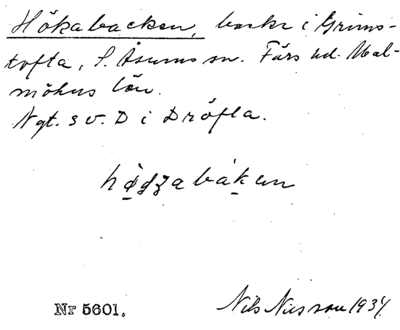 Hökabacken, backe i Grims-
tofta, S. Åsums sn. Färs hd. Mal-
möhus län.
Ngt. SV. D i Dröfla.
Nr 5601. Nils Nilsson 1934